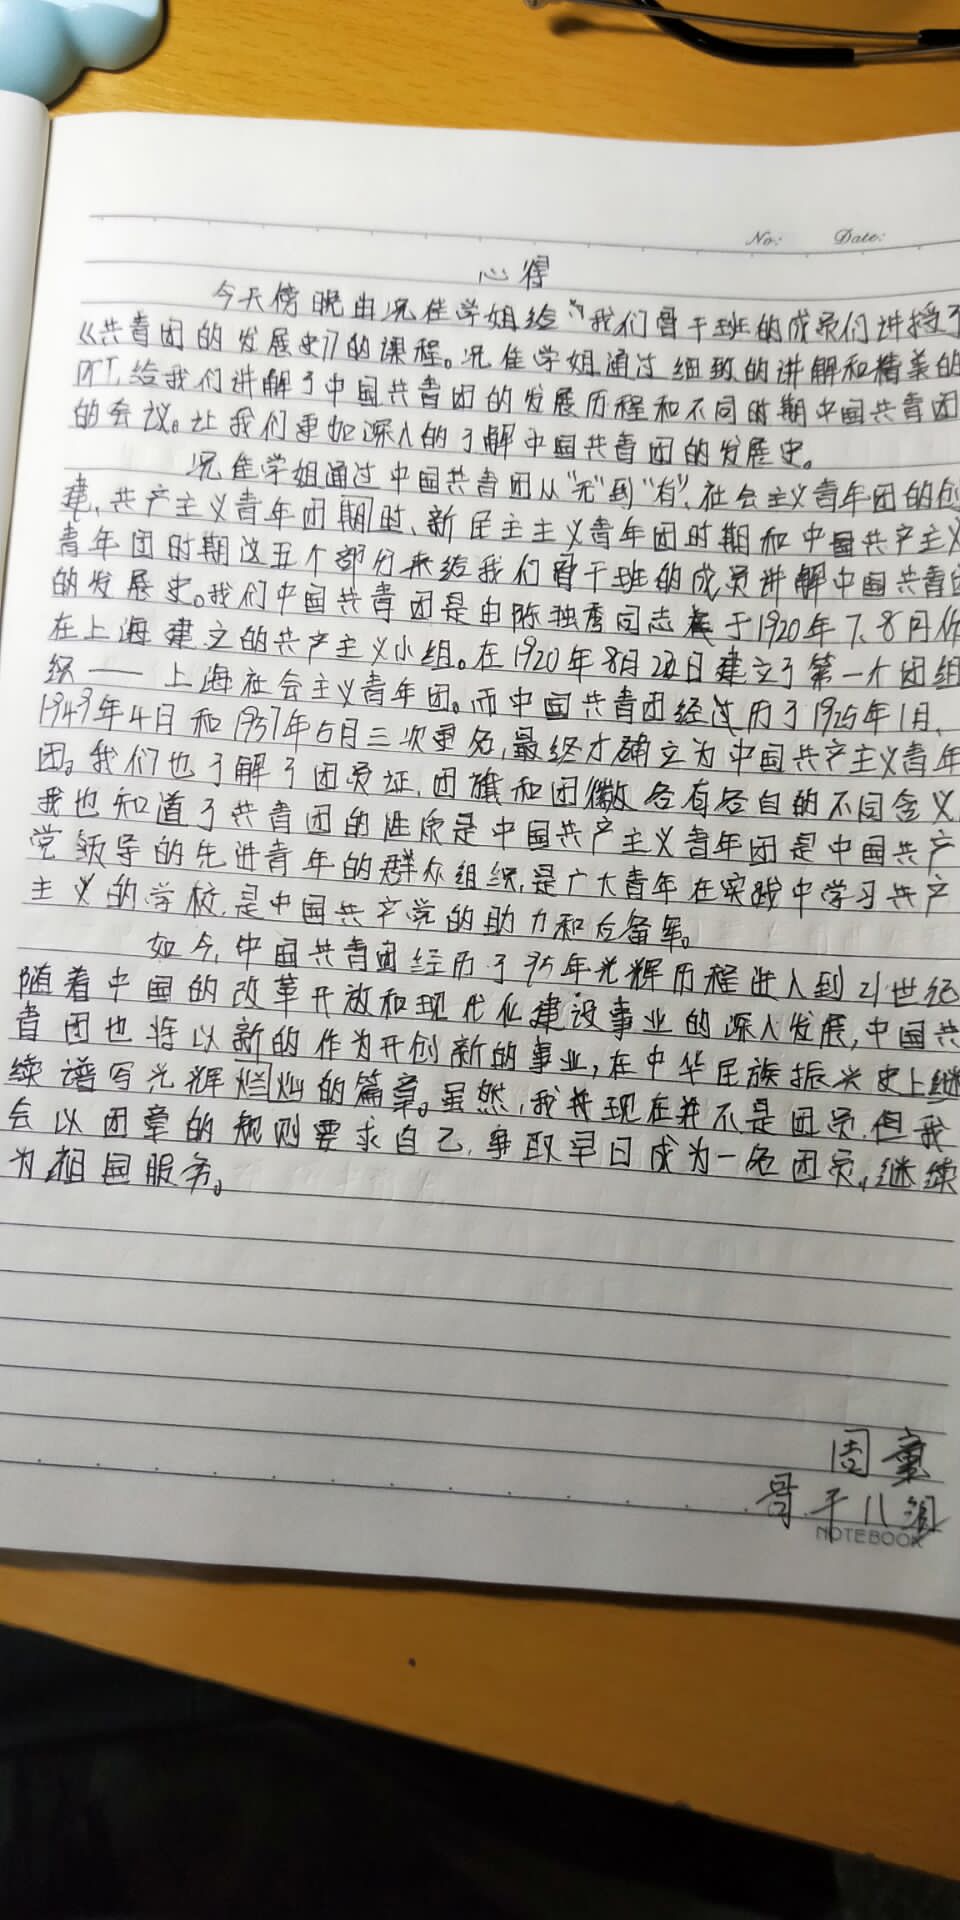 No: Date:
心得
今天傍晚由况佳学姐给我们骨干班的成员们讲授了
《共青团的发展史》的课程。况佳学姐通过细致的讲解和精美的
PPT,给我们讲解了中国共青团的发展历程和不同时期中国共青团
的会议。让我们更如深入的了解中国共青团的发展史。
况佳学姐通过中国共青团从"无"到"有"、社会主义青年团的创
建、共产主义青年团期时、新民主主义青年团时期和中国共产主义
青年团时期这五个部分来给我们骨干班的成员讲解中国共青团
的发展史。我们中国共青团是由陈独秀同志于1920年7、8月份
在上海建立的共产主义小组。在1920年8月22日建立了第一个团组
织——上海社会主义青年团。而中国共青团经过历了1925年1月、
1949年4月和1957年5月三次更名,最终才确立为中国共产主义青年
团。我们也了解了团员证、团旗和团徽各有各自的不同含义
我也知道了共青团的性质是中国共产主义青年团是中国共产
党领导的先进青年的群众组织,是广大青年在实践中学习共产
主义的学校,是中国共产党的助力和后备军。
如今,中国共青团经历了95年光辉历程进入到21世纪
随着中国的改革开放和现代化建设事业的深入发展,中国共
青团也将以新的作为开创新的事业,在中华民族振兴史上继
续谱写光辉烂灿的篇章。虽然,我现在并不是团员,但我
会以团章的规则要求自己,争取早日成为一名团员,继续
为祖国服务。
周童
骨干八组
NOTEBOOK